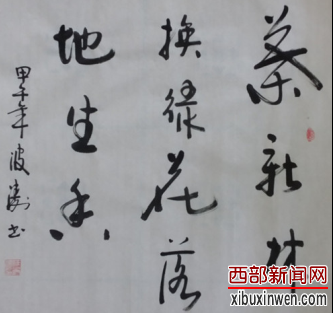 葉新林
换绿花落
地生香
甲午年波书
西部新闻网
xibuxinwen.com